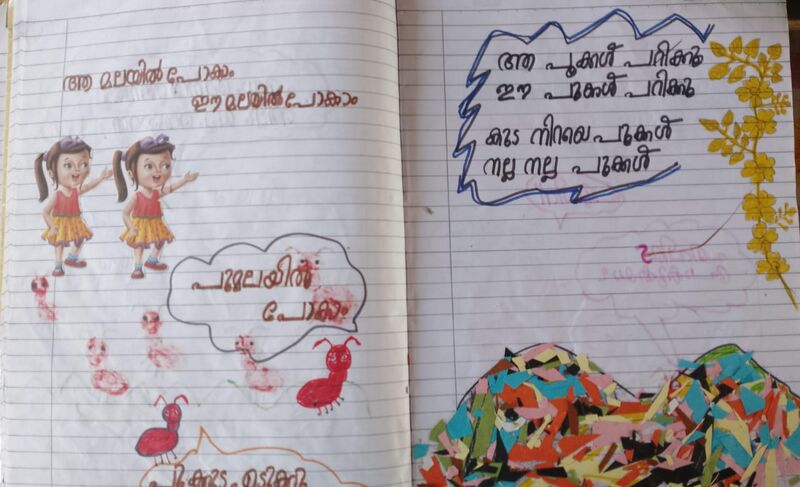 ആ മലയിൽ പോകാം
ഈ മലയിൽ പോകാം
പൂമലയിൽ
പോകാം
പൂക്കുട എടുക്കൂ
ആ പൂക്കൾ പറിക്കൂ
ഈ പൂക്കൾ പറിക്കൂ
കുട നിറയെ പൂക്കൾ
നല്ല നല്ല പൂക്കൾ